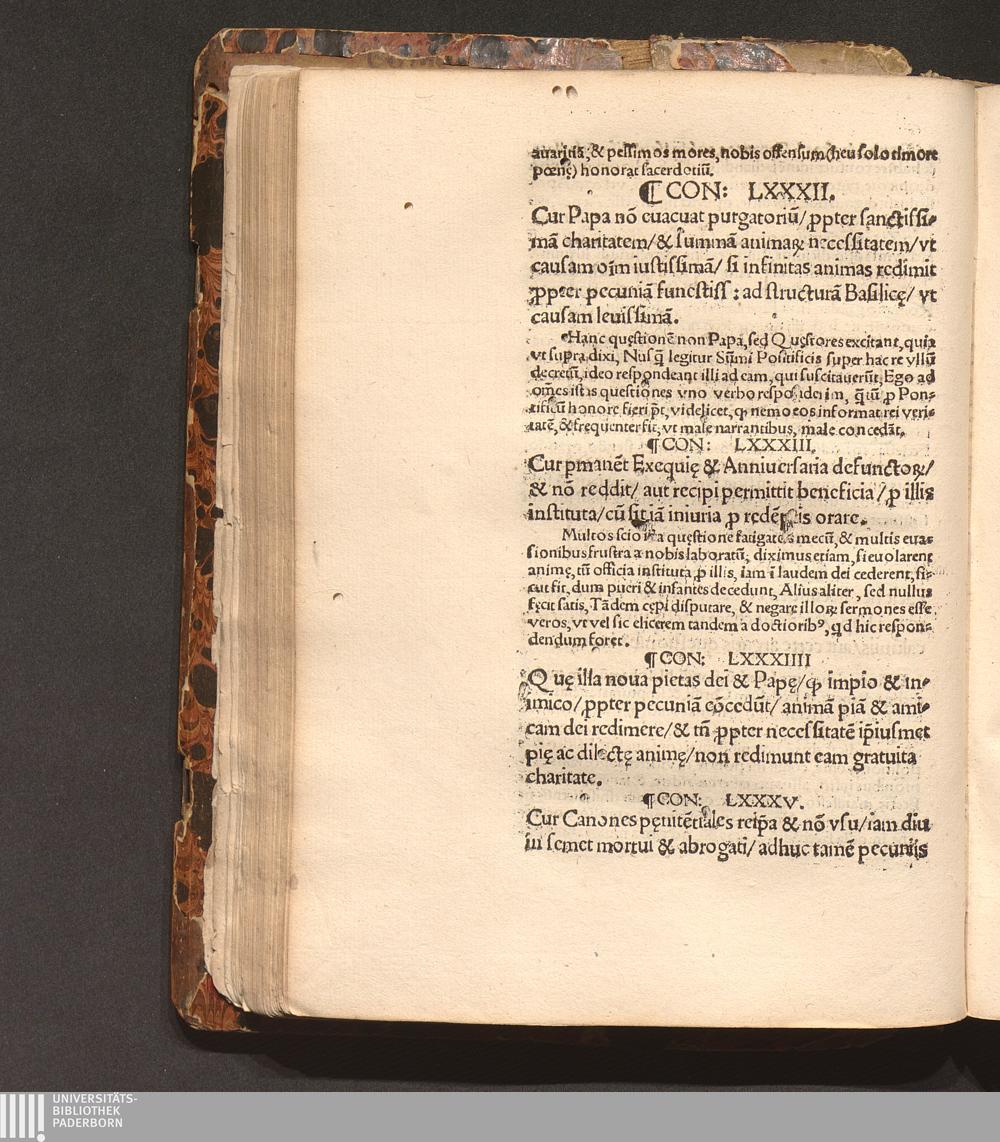 auaritiā, & pessimos mores, nobis offensum (heu solo timore
pœnę) honorat sacerdotiū.
¶ CON: LXXXII.
Cur Papa nō euacuat purgatoriū/ ꝓpter sanctissi-
mā charitatem/ & summā animaꝝ necessitatem/ vt
causam oīm iustissimā/ si infinitas animas redimit
ꝓpter pecuniā funestiss: ad structurā Basilicę/ vt
causam leuissimā.
Hanc quęstionē non Papa, sed Quęstores excitant, quia
vt supra dixi, Nusq̄ legitur Sūmi Pōtificis super hac re vllū
decretū, ideo respondeant illi ad eam, qui suscitauerūt, Ego ad
om̄es istas questiōnes vno verbo respōdeim, q̄tū ꝓ Pon-
tificū honore fieri p̄t, videlicet, ꝙ nemo eos informat rei veri-
tatē, & frequenter fit, vt male narrantibus, male concedāt.
¶ CON: LXXXIII.
Cur ꝑmanēt Exequię & Anniuersaria defunctoꝝ/
& nō reddit/ aut recipi permittit beneficia/ ꝓ illis
instituta/ cū sit iā iniuria ꝓ redēptis orare.
Multos scio ista quęstione fatigatos mecū, & multis eua-
sionibus frustra a nobis laboratū, diximus etiam, si euolarent
animę, tū officia instituta ꝓ illis, iam ī laudem dei cederent, si-
cut fit, dum pueri & infantes decedunt, Alius aliter, sed nullus
fęcit satis, Tādem cępi disputare, & negare illoꝝ sermones esse
veros, vt vel sic elicerem tandem a doctioribꝰ, qd hic respon-
dendum foret.
¶ CON: LXXXIIII
Quę illa noua pietas dei & Papę/ ꝙ impio & in-
imico/ ꝓpter pecuniā cōcedūt/ animā piā & ami-
cam dei redimere/ & tn̄ ꝓpter necessitatē ip̄iusmet
pię ac dilectę animę/ non redimunt eam gratuita
charitate.
¶ CON: LXXXV.
Cur Canones pęnitētiales reip̄a & nō vsu/ iam diu
in semet mortui & abrogati/ adhuc tamē pecunijs
UNIVERSITÄTS-
BIBLIOTHEK
PADERBORN